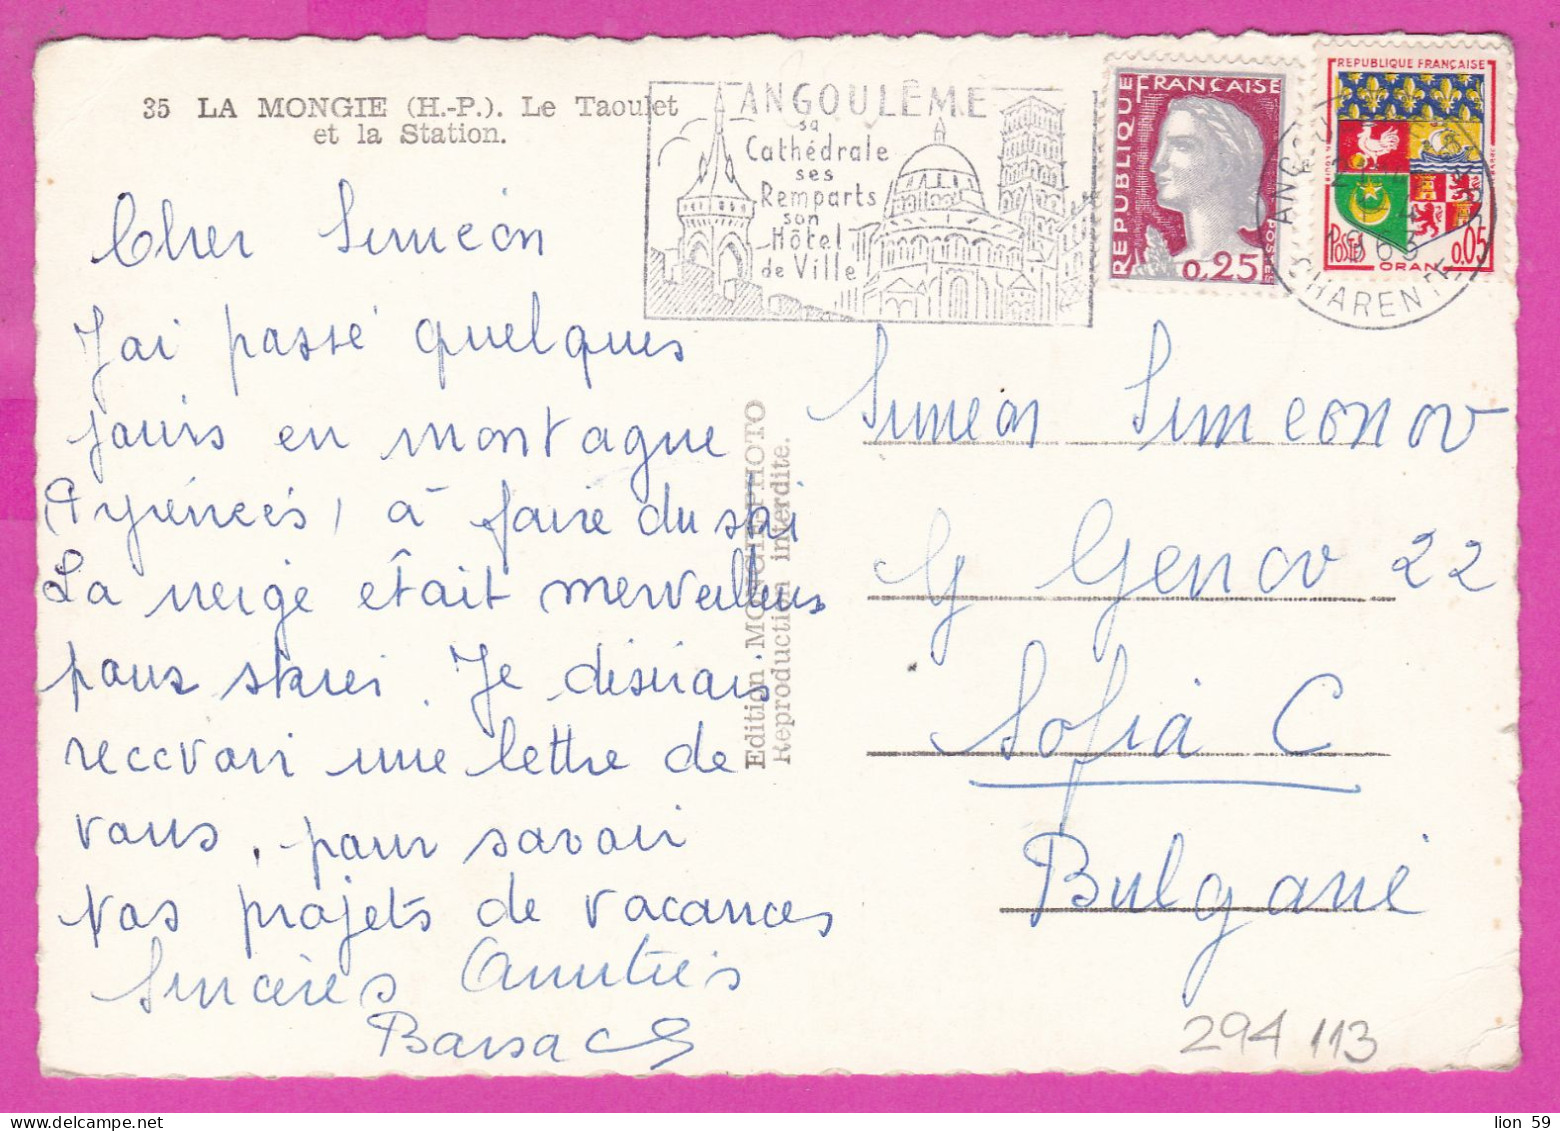 35 LA MONGIE (H.-P.). Le Taoulet
et la Station.
ANGOULÊME
sa
Cathédrale
ses
Remparts
son
Hôtel
de Ville
RÉPUBLIQUE FRANÇAISE
0,25
POSTES
REPUBLIQUE FRANÇAISE
POSTES
0.05
ORAN
CHARENTE
63
Cher Siméon
J'ai passé quelques
jours en montagne
(Pyrénées) à faire du ski
La neige était merveilleuse
pour skier. Je désirais
recevoir une lettre de
vous, pour savoir
vos projets de vacances
Sincères Amitiés
Barsac
Edition MONGIE-PHOTO
Reproduction interdite.
Simeon Simeonov
G Genov 22
Sofia C
Bulgarie
294113
lion 59